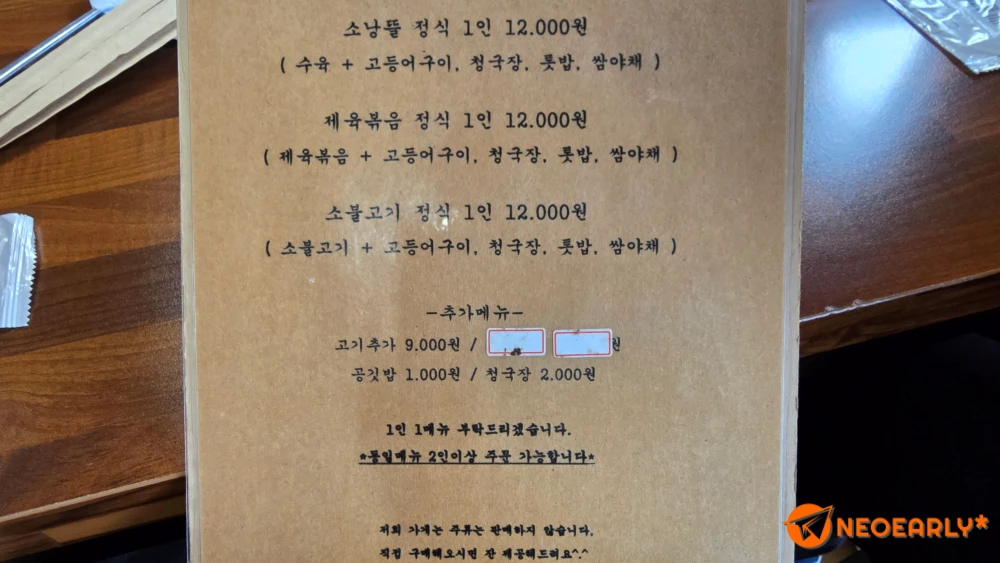 소낭뜰 정식 1인 12.000원
( 수육 + 고등어구이, 청국장, 톳밥, 쌈야채 )
제육볶음 정식 1인 12.000원
( 제육볶음 + 고등어구이, 청국장, 톳밥, 쌈야채 )
소불고기 정식 1인 12.000원
( 소불고기 + 고등어구이, 청국장, 톳밥, 쌈야채 )
-추가메뉴-
고기추가 9.000원 / 원
공깃밥 1.000원 / 청국장 2.000원
1인 1메뉴 부탁드리겠습니다.
*동일메뉴 2인이상 주문 가능합니다*
저희 가게는 주류는 판매하지 않습니다.
직접 구매해오시면 잔 제공해드려요^.^
NEOEARLY*